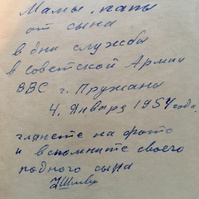 Мамы, папы
от сына
в дни службы
в советской Армии
ВВС г. Пружаны
4. Января 1957 года.
гляньте на фото
и вспомните своего
родного сына